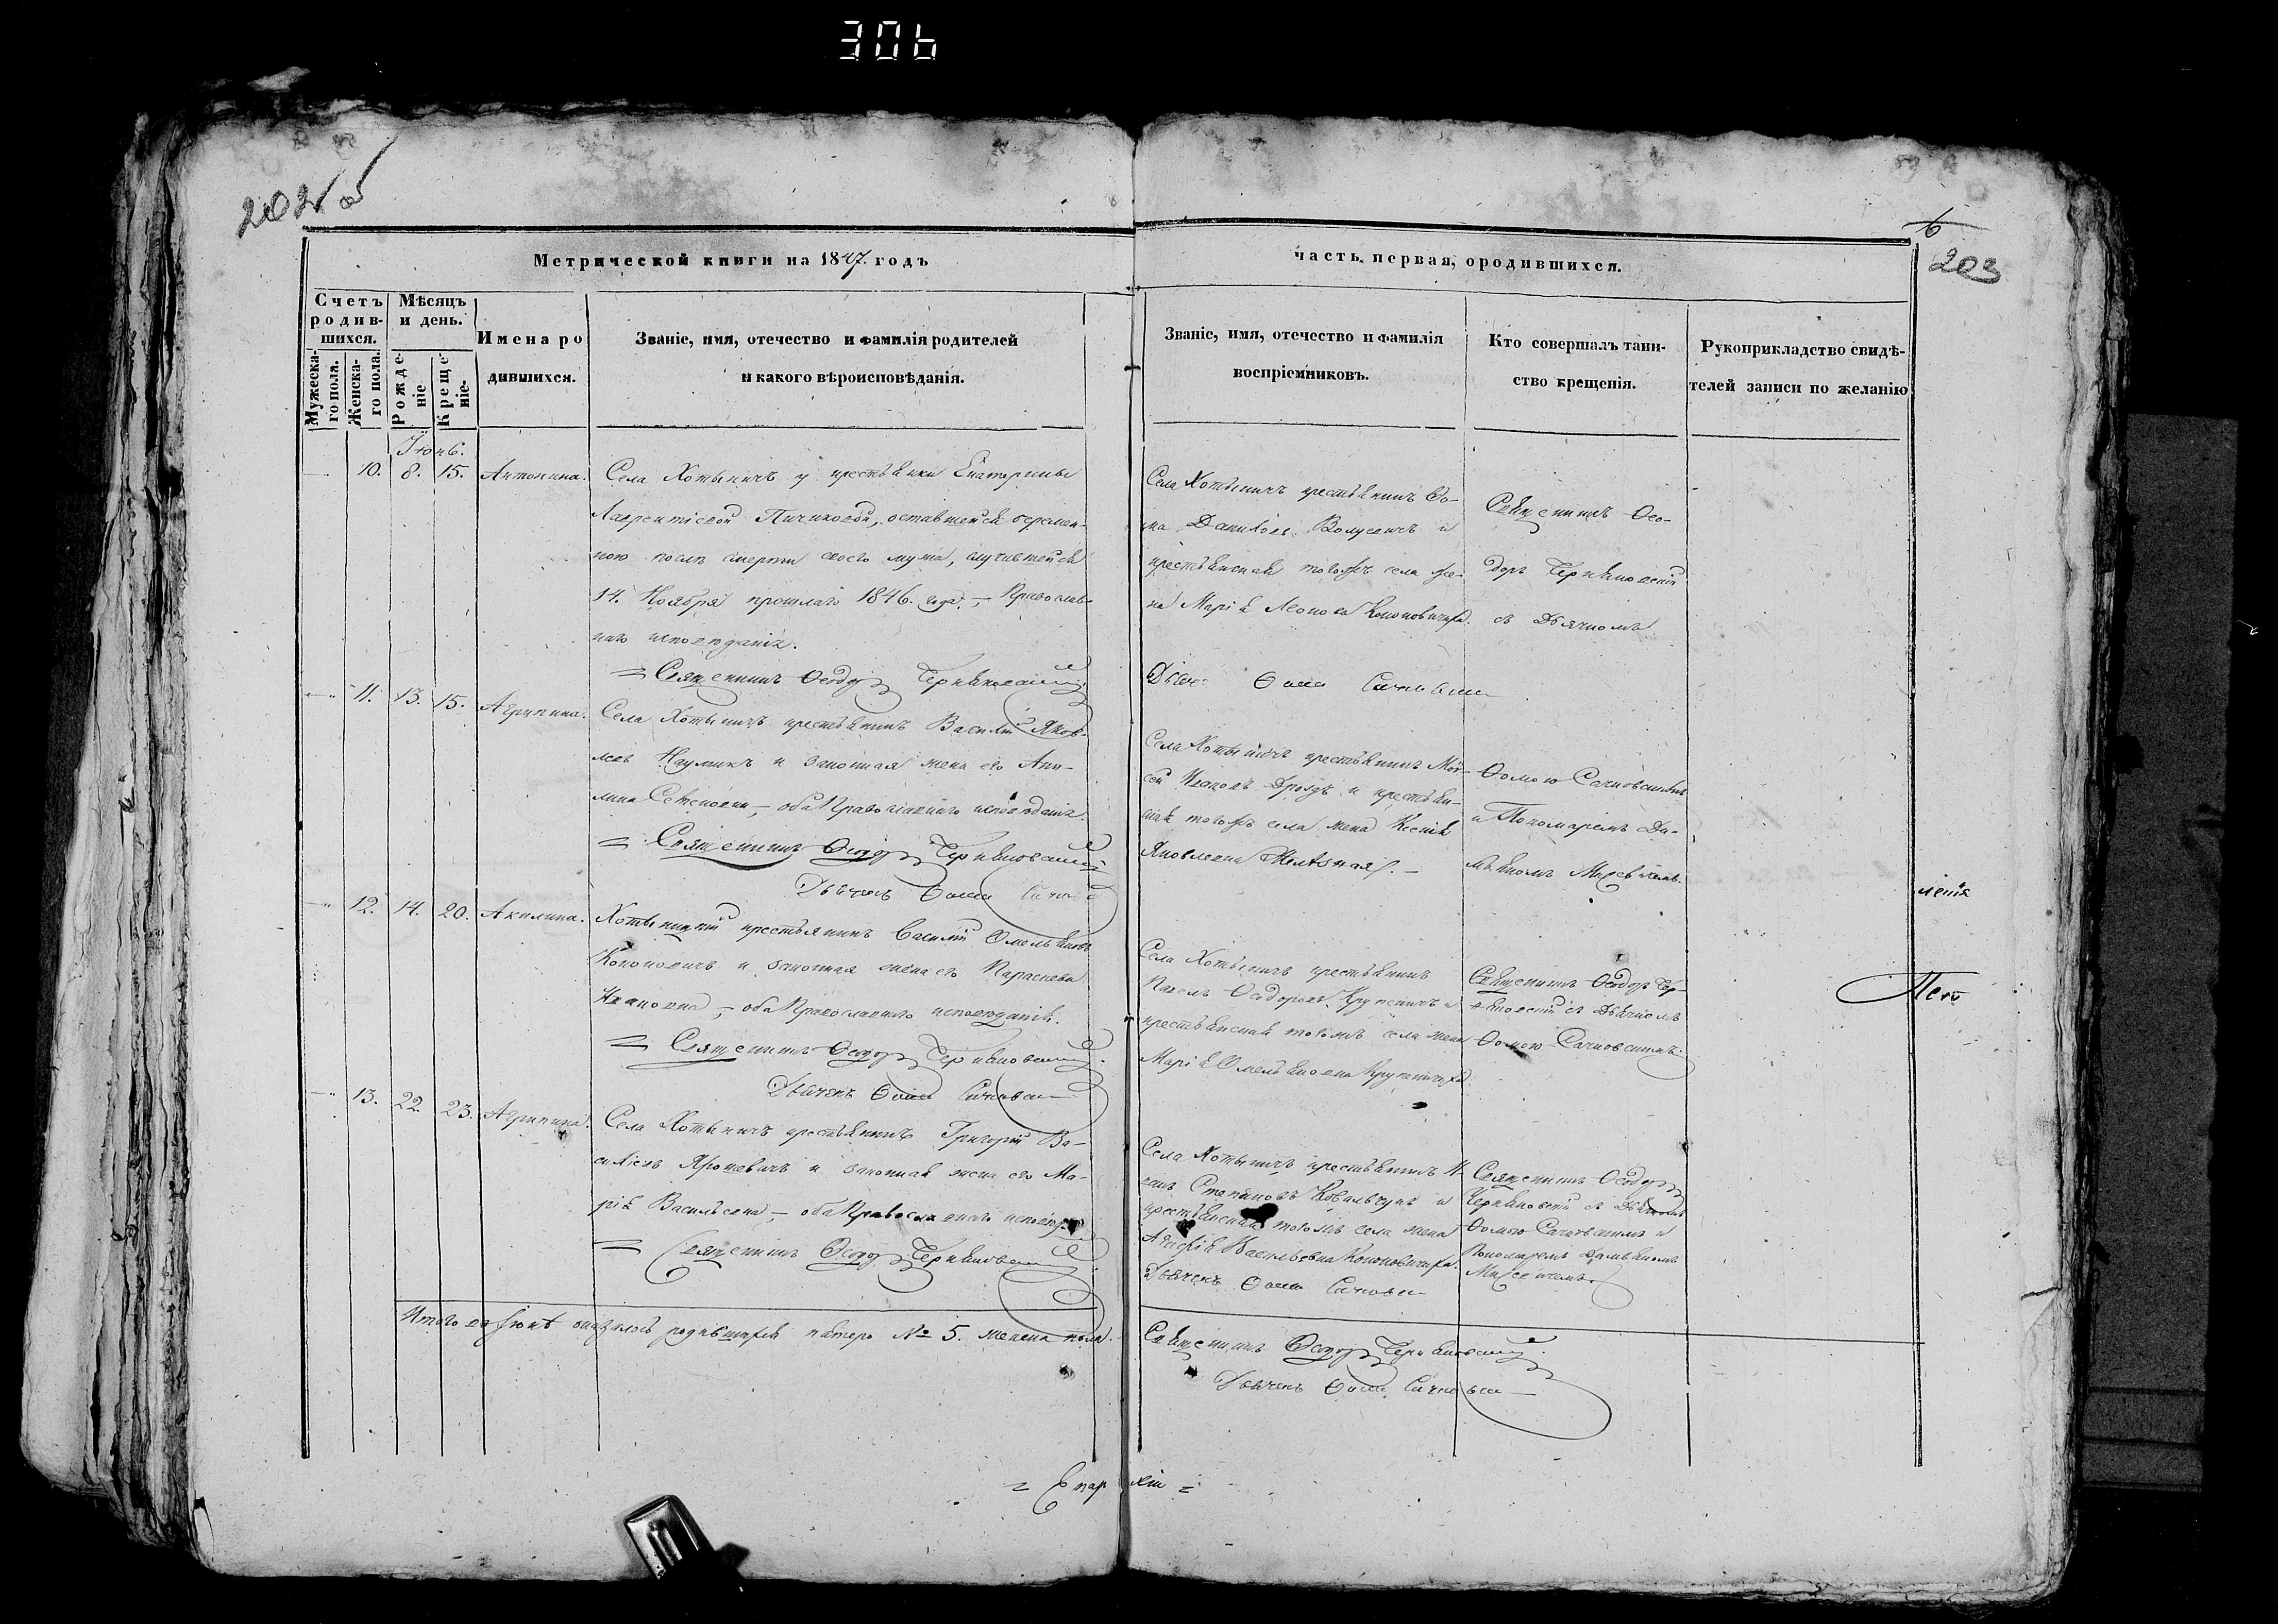 306
202 об
6
203
Метрической книги на 1847. годъ
часть первая, ородившихся.
Счетъ родив-шихся.
Мужеска-го пола.
Женска-го пола.
Мѣсяцъ и день.
Рожде-ніе
Креще-ніе.
Имена ро
дившихся.
Званіе, имя, отечество и фамилія родителей
и какого вѣроисповѣданія.
Званіе, имя, отечество и фамилія
воспріемниковъ.
Кто совершалъ таин-
ство крещенія.
Рукоприкладство свидѣ-
телей записи по желанію
Іюнь.
10. 8. 15. Антонина.
Села Хотыничъ у крестьянки Екатерины
Лаврентіевой Пичиковой, оставшейся беремен-
ною послѣ смерти своего мужа, случившейся
14. Ноября прошлаго 1846. года, – Православ-
наго исповѣданія.
= Священникъ Ѳеодоръ Черняковскій
Села Хотыничъ крестьянинъ Ѳо-
ма Даниловъ Волусевичъ и
крестьянская тогожъ села же-
на Марія Леонова Кононовичова.
Дьячекъ Ѳома Сачковскій
Священникъ Ѳео-
доръ Черняковскій
съ Дьячкомъ
11. 13. 15. Агрипина.
Села Хотыничъ крестьянинъ Василій Яков-
левъ Наумикъ и законная жена его Аки-
лина Семенова, – оба Православнаго исповѣданія.
= Священникъ Ѳеодоръ Черняковскій
Дьячекъ Ѳома
Села Хотыничъ крестьянинъ Мой-
сей Ивановъ Дроздъ и крестьян-
ская тогожъ села жена Ксенія
Яковлевна
Ѳомою Сачковскимъ
и Пономаремъ Да-
мьяномъ
12. 14. 20. Акилина.
Хотыницкій крестьянинъ Василій Омельяновъ
Кононовичъ и законная жена его Параскева
Ивановна, – оба Православнаго исповѣданія.
= Священникъ Ѳеодоръ Черняковскій
Дьячекъ Ѳома Сачковскій
Села Хотыничъ крестьянинъ
Павелъ Ѳеодоровъ Крупеничъ и
крестьянская тогожъ села жена
Марія Омельяновна
Священникъ Ѳеодоръ Чер-
няковскій съ Дьячкомъ
Ѳомою Сачковскимъ.
13. 22. 23. Агрипина.
Села Хотыничъ крестьянинъ Григорій Ва-
силіевъ Ярошевичъ и законная жена его Ма-
рія Васильевна, – оба Православнаго
= Священникъ Ѳеодоръ Черняковскій
Села Хотыничъ крестьянинъ И-
ванъ Степановъ Ковальчукъ и
крестьянская тогожъ села жена
Васильевна Кононовичова.
Дьячекъ Ѳома Сачковскій
Священникъ Ѳеодоръ
Черняковскій съ Дьячкомъ
Ѳомою Сачковскимъ и
Пономаремъ Дамьяномъ
Итого въ Іюнѣ оказалось родившихся пятеро № 5. женска пола.
Священникъ Ѳеодоръ Черняковскій
Дьячекъ Ѳома Сачковскій
= Епар хіи =
ленія